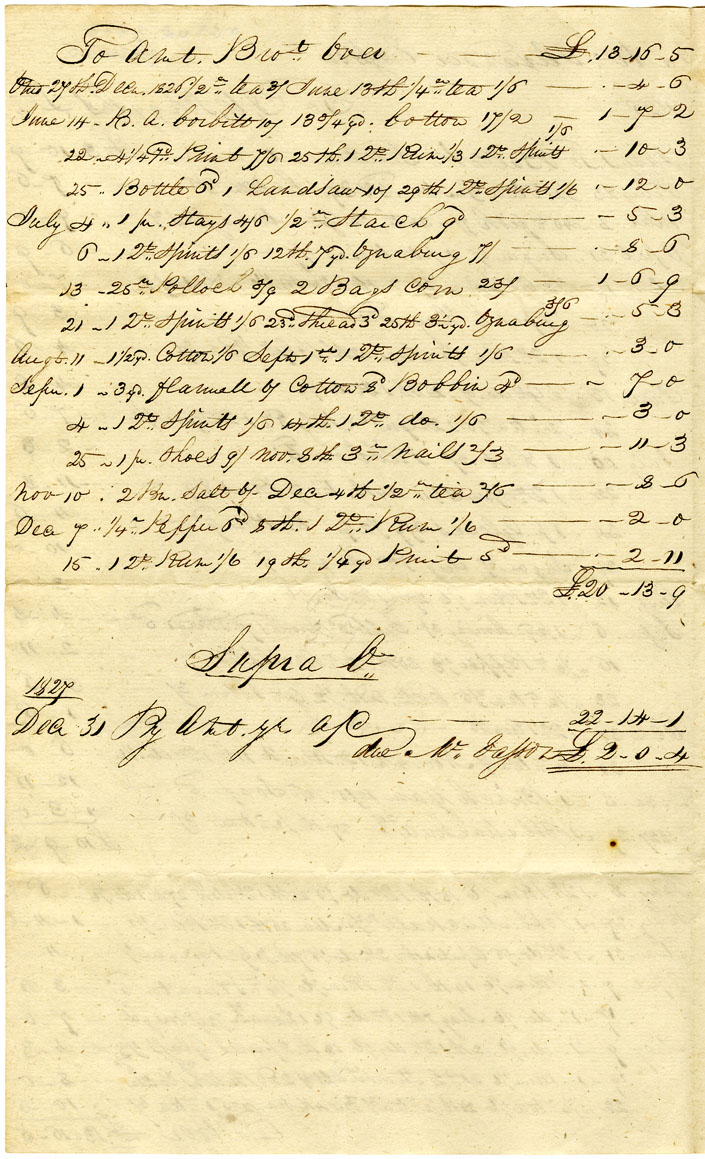 To Amt. Brot. Over £.13-16-5
27th Decr. 1826 1/2 lb tea 3/ June 13th 1/4 lb tea 1/6 -4-6
June 14 - B. A. Corbitt 10/ 13 3/4 yd. Cotton 17/2 1-7-2
22 - 4 1/4 yd. Print 7/6 25th. 1 Qt. Rum 1/3 1 Qt. Spirits 1/6 -10-3
25 - Bottle 6d 1 Handsaw 10/ 29th 1 Qt. Spirits 1/6 -12-0
July 4 - 1 pr. Stays 4/6 1/2 lb Starch 9d -5-3
6 - 1 Qt. Spirits 1/6 12th. 7 yd. Oznaburg 7/ -8-6
13 - 25 lb Pollock 3/9 2 Bags Corn 23/ 1-6-9
21 - 1 Qt. Spirits 1/6 23d. thread 3d 25th 3 1/2 yd. Oznaburg 3/6 -5-3
Augt. 11 - 1 1/2 yd. Cotton 1/6 Septr. 1st. 1 Qt. Spirits 1/6 -3-0
Sepr. 1 - 3 yd. flannall 6/ Cotton 8d Bobbin 4d - 7-0
4 - 1 Qt. Spirits 1/6 14th. 1 Qt. do. 1/6 -3-0
25 - 1 pr. Shoes 9/ Nov. 8th 3 lb Nails 2/3 -11-3
Nov 10 . 2 Bu. Salt 6/- Dec 4th 1/2 lb tea 2/6 -8-6
Dec 7 - 1/4 lb Pepper 6d 8th. 1 Qt. Rum 1/6 -2-0
15 - 1 Qt. Rum 1/6 19th. 1/4 yd Print 5d 2-11
£.20-13-9
Supra Cr.
1827
Dec 31 By Amt. yr. a/c 22-14-1
due Mr. £.2-0-4